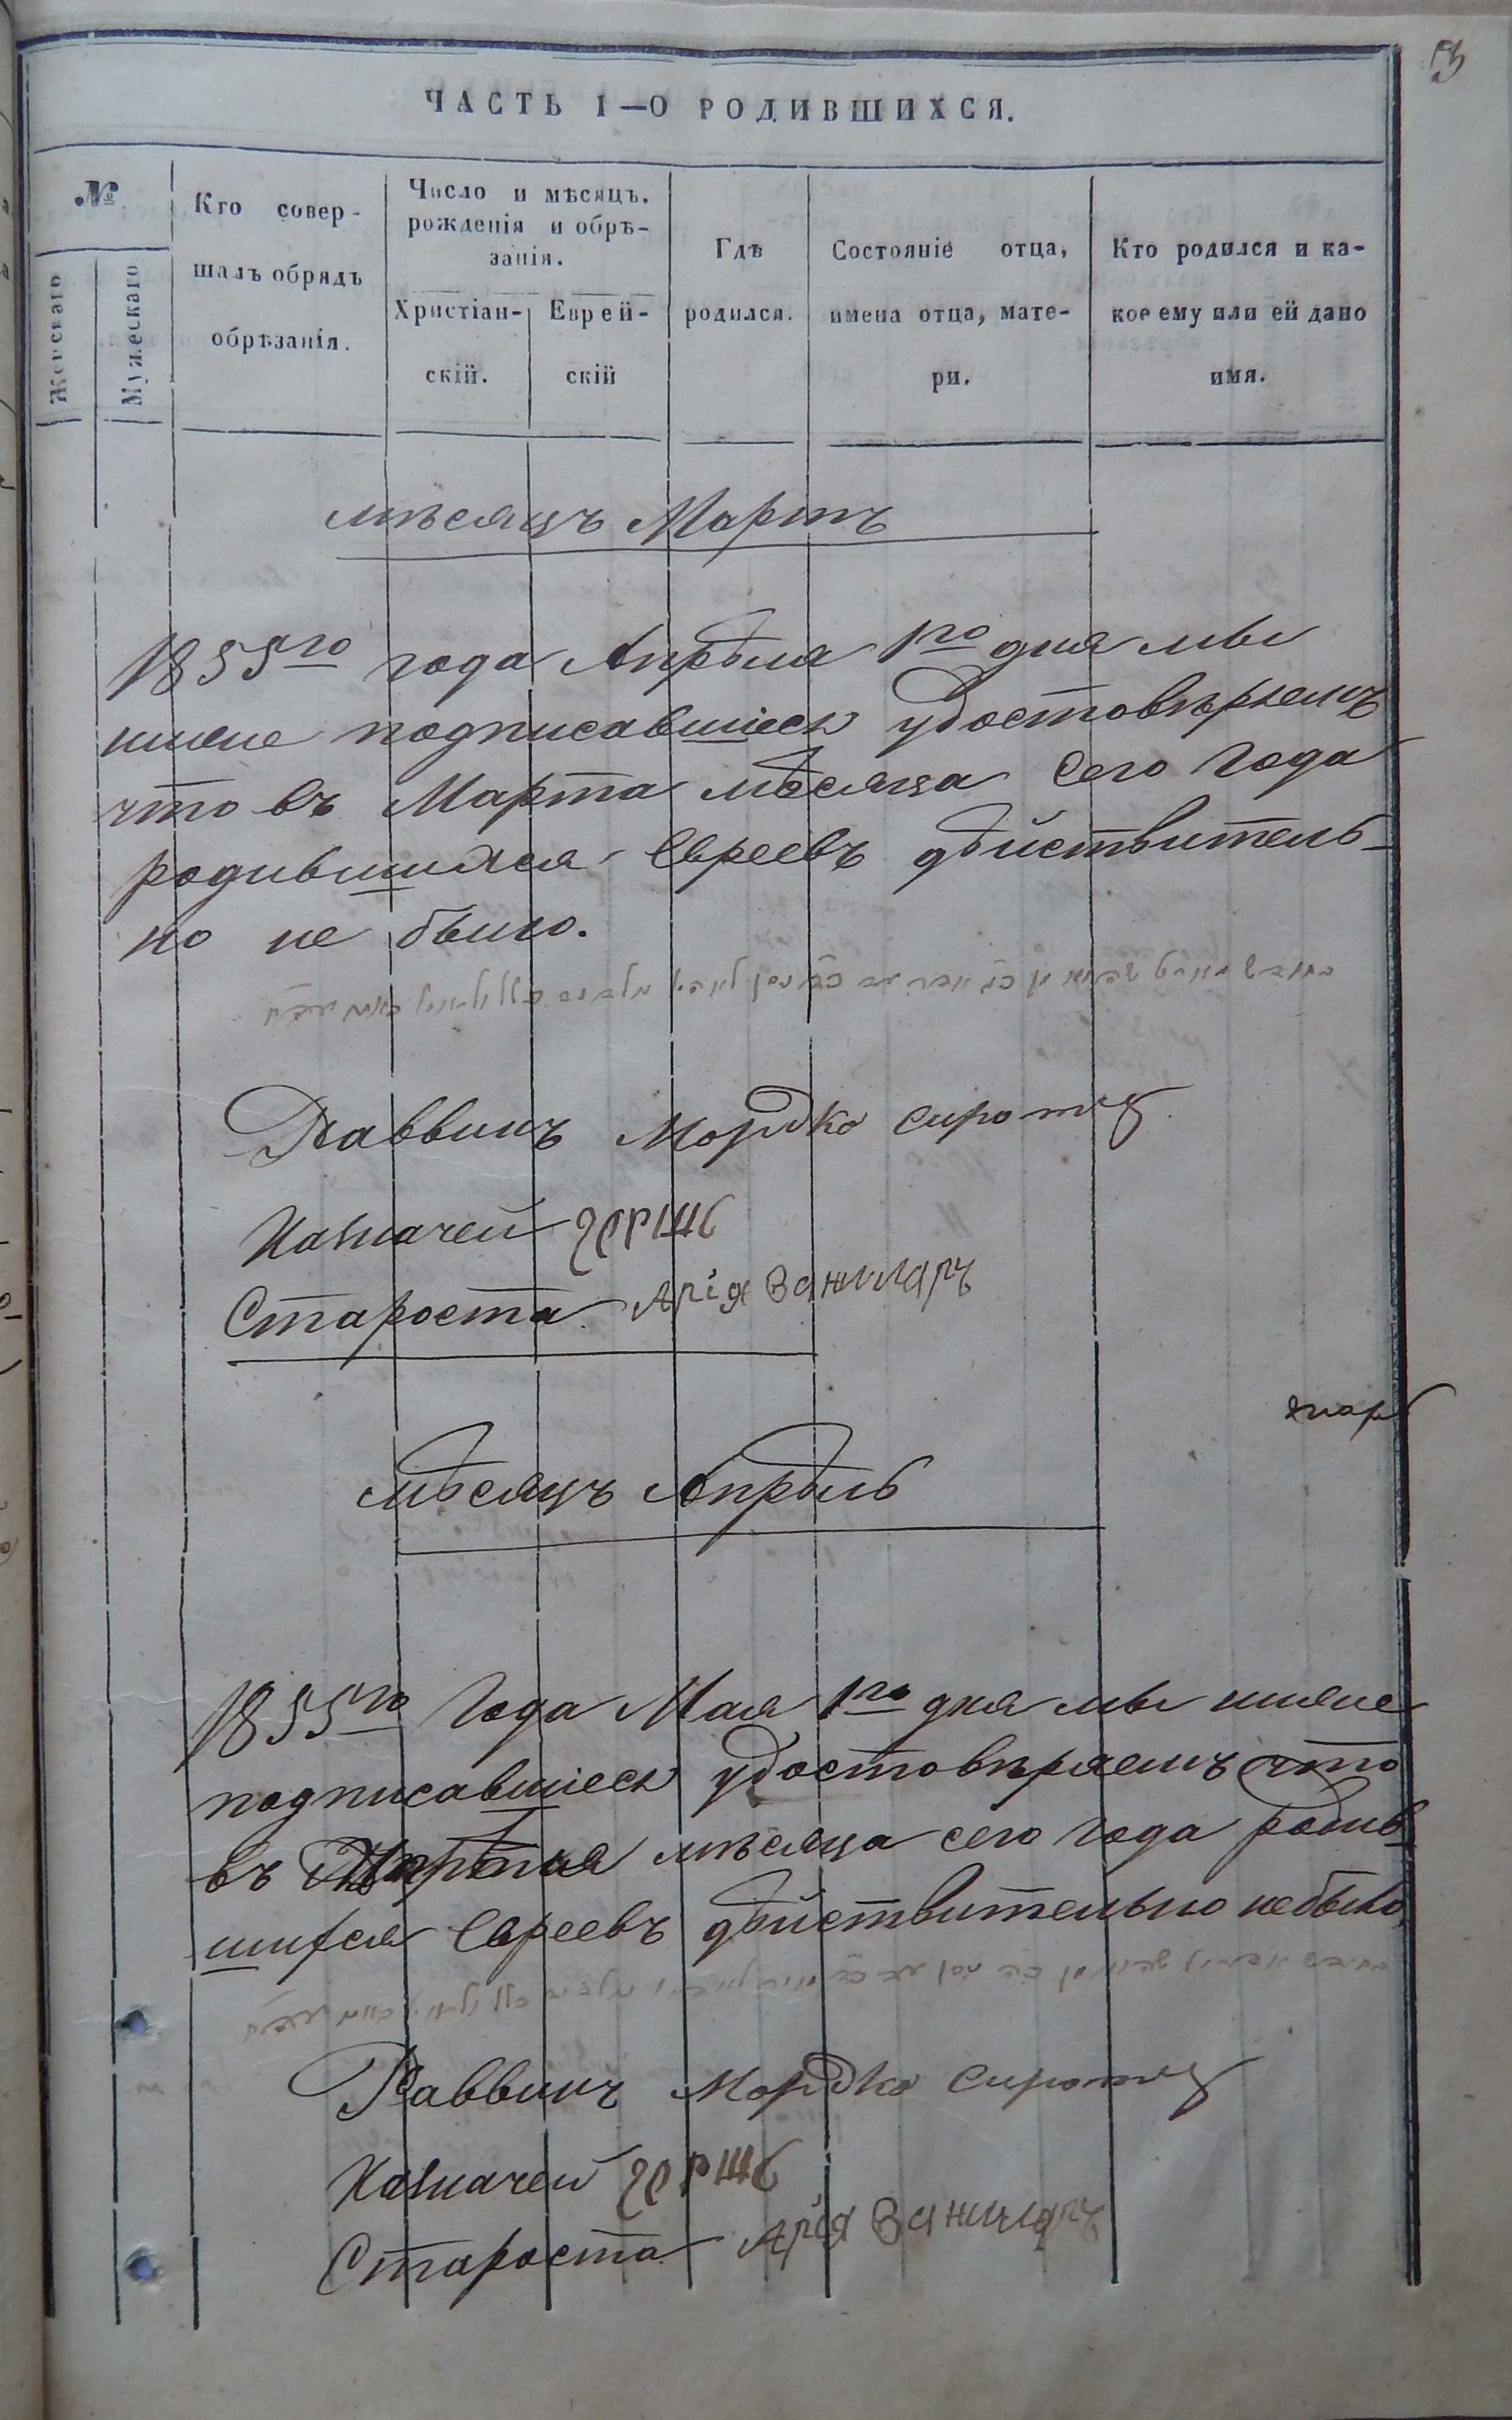 ЧАСТЬ I—О РОДИВШИХСЯ.
№
Женскаго
Мужескаго
Кто совер-
шалъ обрядъ
обрѣзанія.
Число и мѣсяцъ.
рожденія и обрѣ-
занія.
Христіан-
скій.
Еврей-
скій
Гдѣ
родился.
Состояніе отца,
имена отца, мате-
ри.
Кто родился и ка-
кое ему или ей дано
имя.
мѣсяцъ Мартъ
1855го года Апрѣля 1го дня мы
ниже подписавшіеся удостовѣряемъ
что въ Марта мѣсяца сего года
родившихся Евреевъ дѣйствитель-
но не было.
Раввинъ Мордко
Казначей Гершъ
Староста Арія
мѣсяцъ Апрѣль
1855го Года Мая 1го дня мы ниже
подписавшіеся удостовѣряемъ что
въ Апрѣля мѣсяца сего года родив-
шихся Евреевъ дѣйствительно небыло
Раввинъ Мордко
Казначей Гершъ
Староста Арія